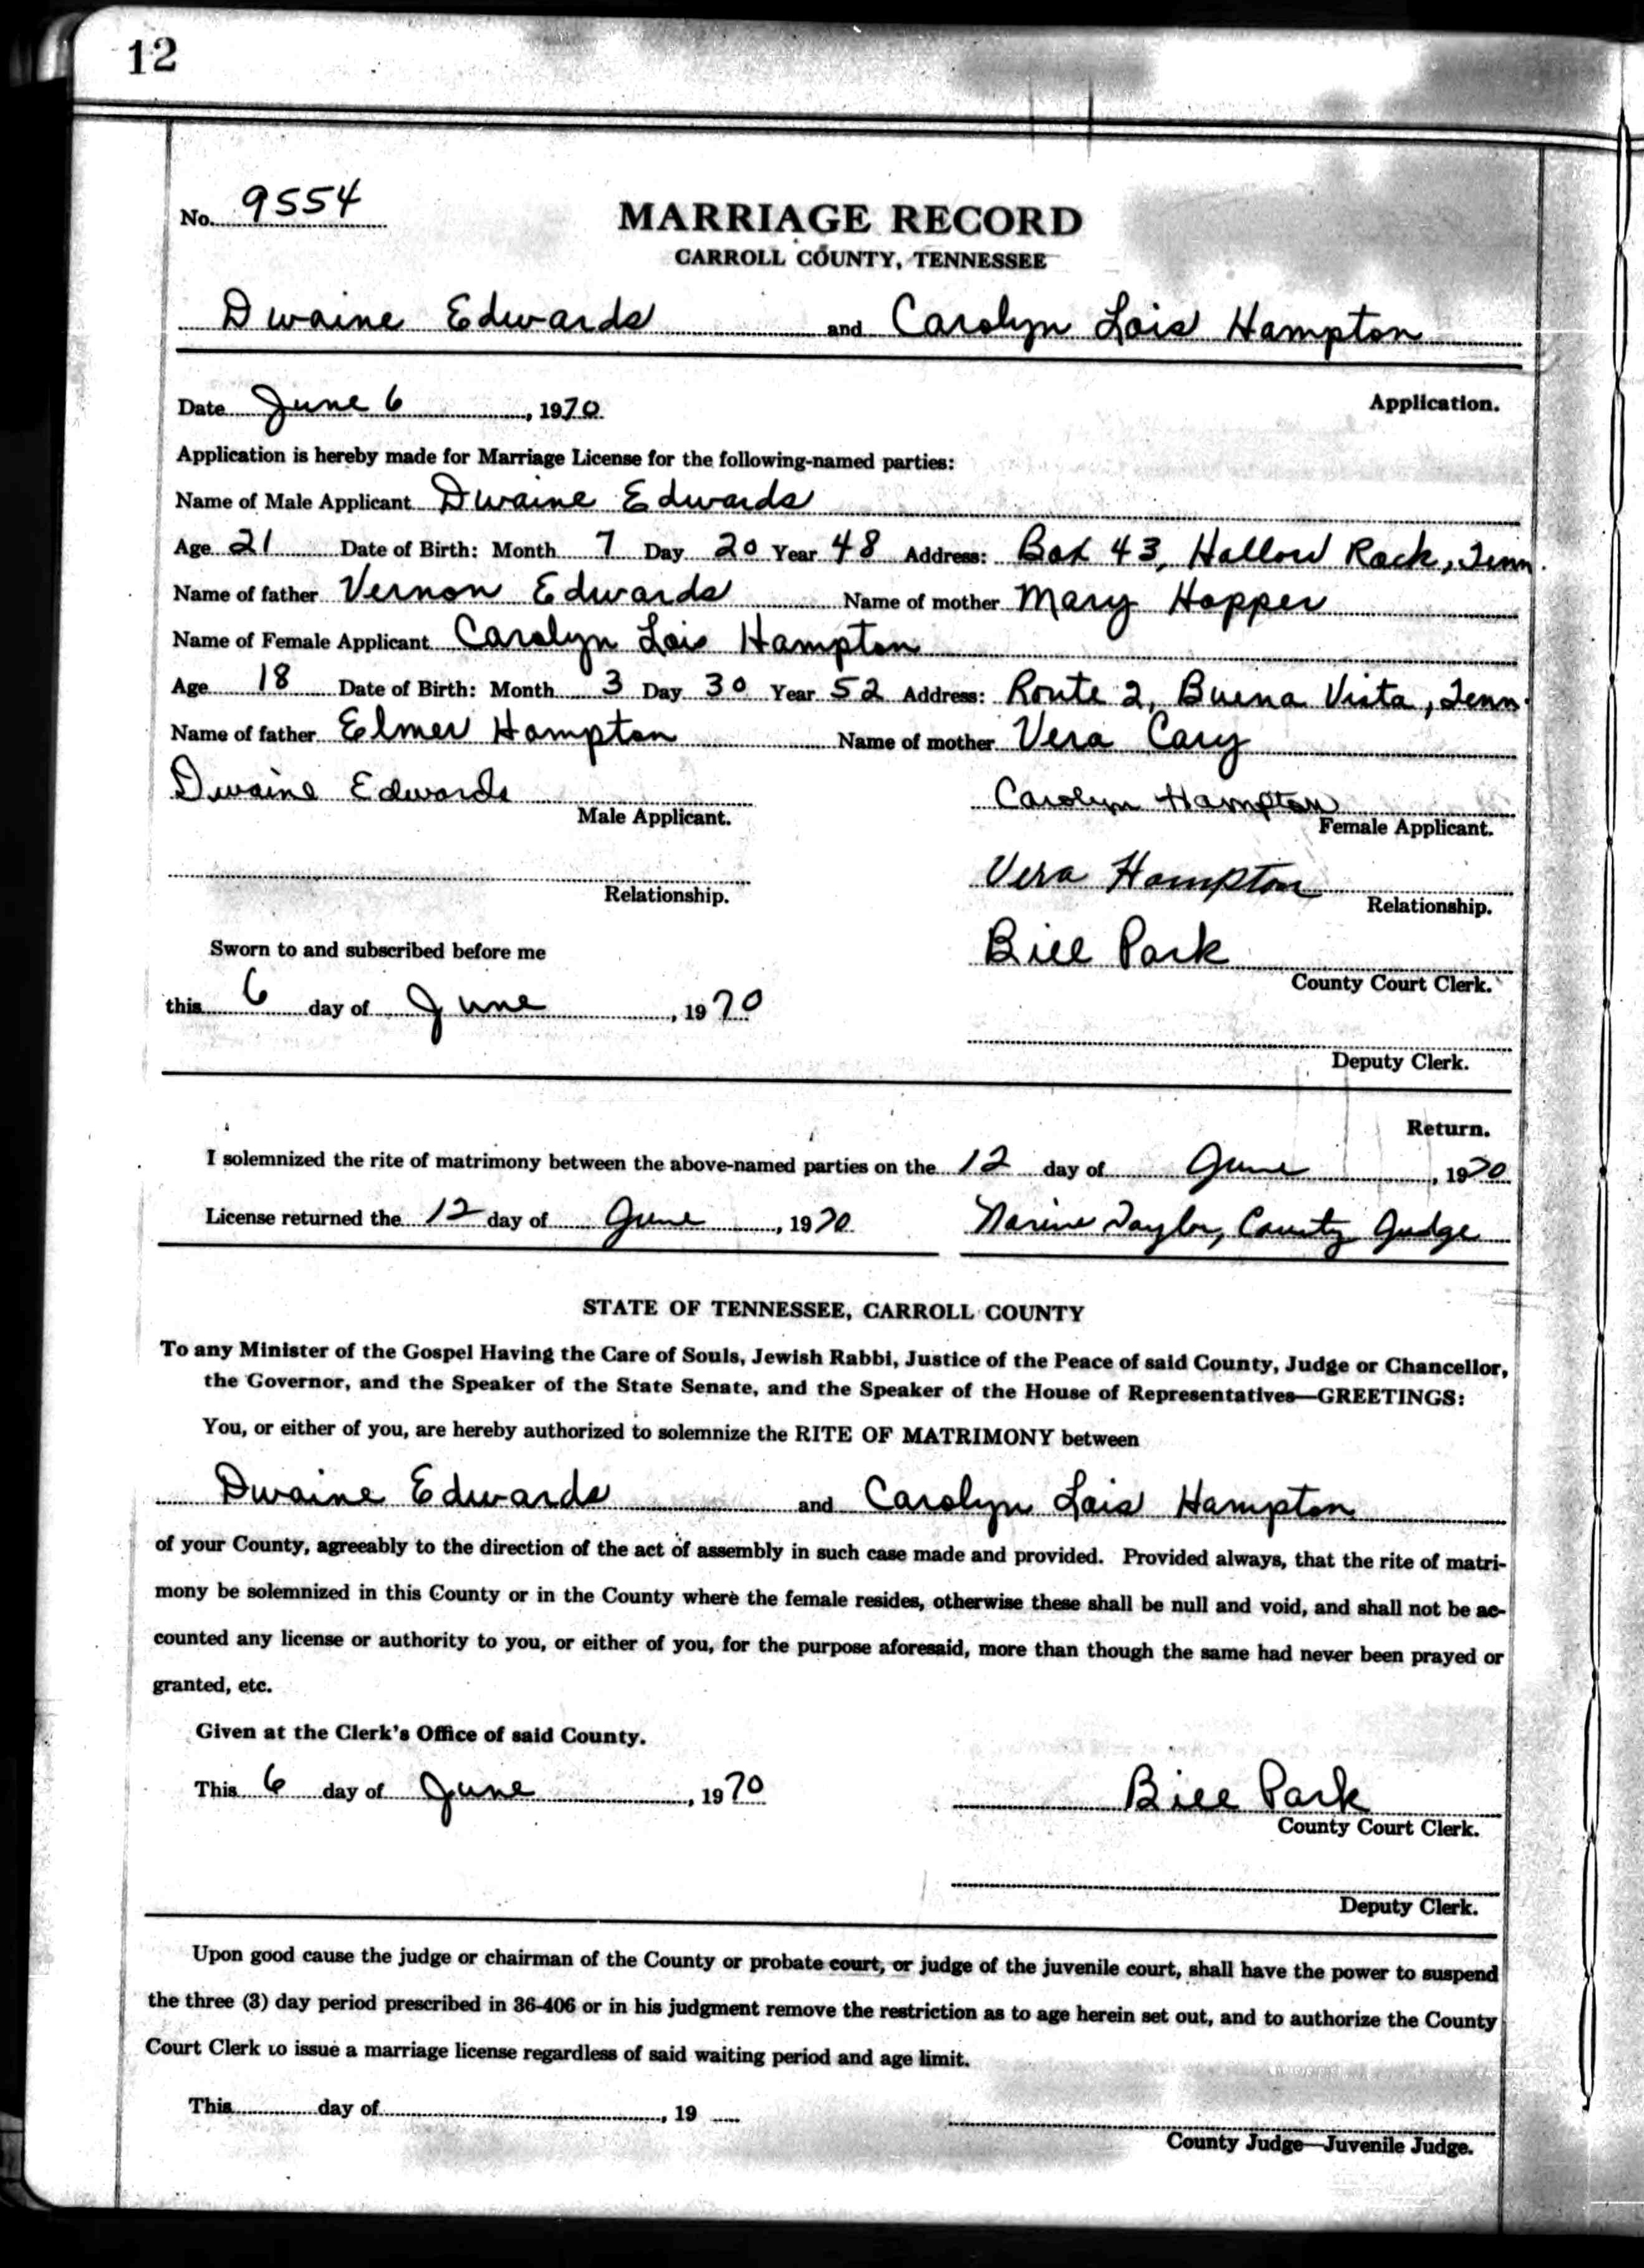 12
No. 9554
MARRIAGE RECORD
CARROLL COUNTY, TENNESSEE
Dwaine Edwards and Carolyn Lois Hampton
Date June 6, 1970
Application.
Application is hereby made for Marriage License for the following-named parties:
Name of Male Applicant Dwaine Edwards
Age 21 Date of Birth: Month 7 Day 20 Year 48 Address: Box 43, Hollow Rock, Tenn.
Name of father Vernon Edwards Name of mother Mary Hopper
Name of Female Applicant Carolyn Lois Hampton
Age 18 Date of Birth: Month 3 Day 30 Year 52 Address: Route 2, Buena Vista, Tenn.
Name of father Elmer Hampton Name of mother Vera Cary
Dwaine Edwards Carolyn Hampton
Male Applicant. Female Applicant.
Vera Hampton
Relationship. Relationship.
Sworn to and subscribed before me Bill Park
County Court Clerk.
this 6 day of June, 1970
Deputy Clerk.
Return.
I solemnized the rite of matrimony between the above-named parties on the 12 day of June, 1970
License returned the 12 day of June, 1970 Taylor, County Judge
STATE OF TENNESSEE, CARROLL COUNTY
To any Minister of the Gospel Having the Care of Souls, Jewish Rabbi, Justice of the Peace of said County, Judge or Chancellor,
the Governor, and the Speaker of the State Senate, and the Speaker of the House of Representatives—GREETINGS:
You, or either of you, are hereby authorized to solemnize the RITE OF MATRIMONY between
Dwaine Edwards and Carolyn Lois Hampton
of your County, agreeably to the direction of the act of assembly in such case made and provided. Provided always, that the rite of matri-
mony be solemnized in this County or in the County where the female resides, otherwise these shall be null and void, and shall not be ac-
counted any license or authority to you, or either of you, for the purpose aforesaid, more than though the same had never been prayed or
granted, etc.
Given at the Clerk's Office of said County.
This 6 day of June, 1970 Bill Park
County Court Clerk.
Deputy Clerk.
Upon good cause the judge or chairman of the County or probate court, or judge of the juvenile court, shall have the power to suspend
the three (3) day period prescribed in 36-406 or in his judgment remove the restriction as to age herein set out, and to authorize the County
Court Clerk to issue a marriage license regardless of said waiting period and age limit.
This day of , 19
County Judge—Juvenile Judge.